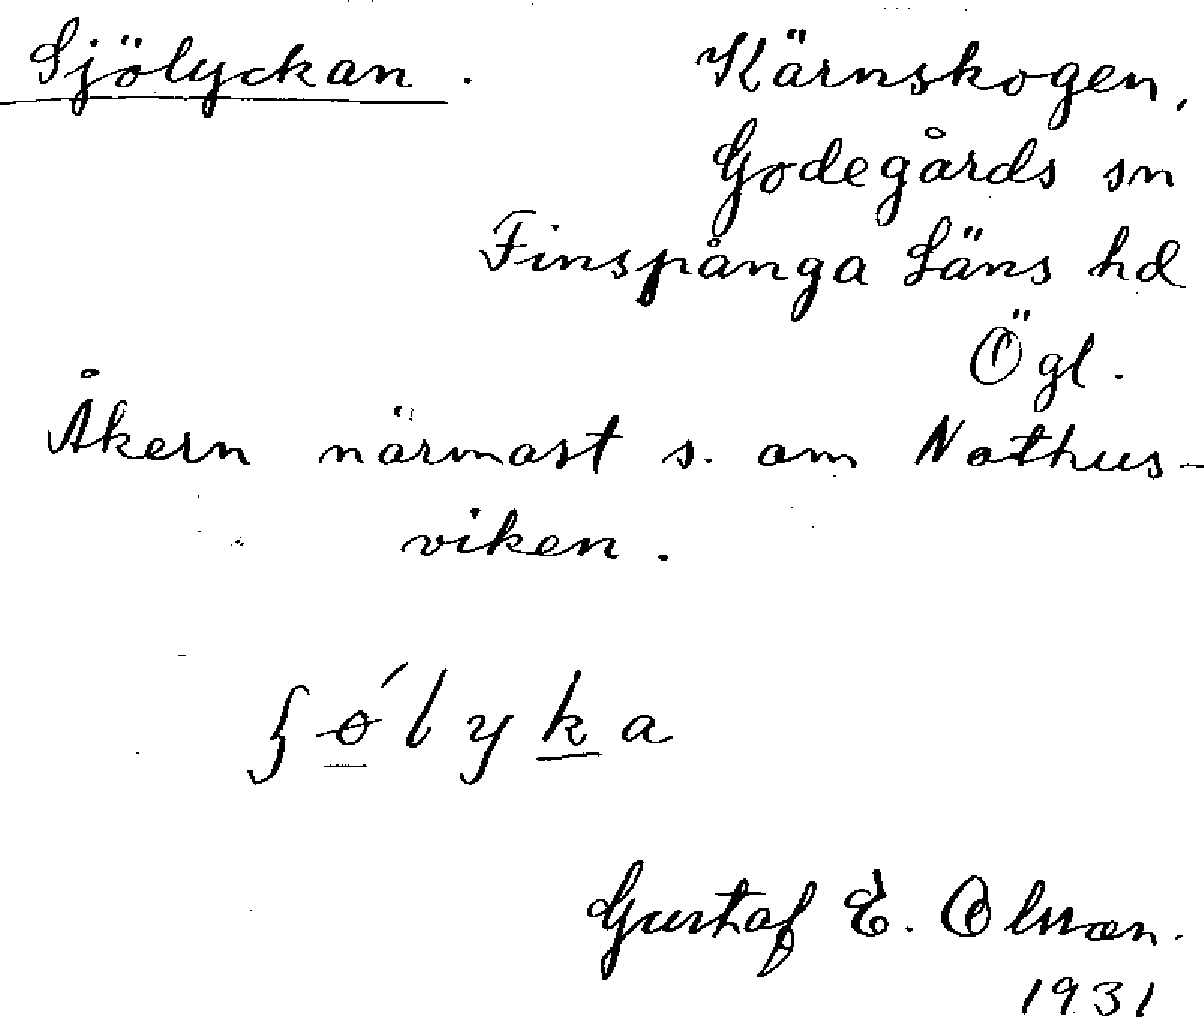 Sjölyckan. Kärnskogen,
Godegårds sn
Finspånga Läns hd
Ögl.
Åkern närmast s. om Nothus-
viken.
ʃɵ́lyka
Gustaf E. Olsson.
1931